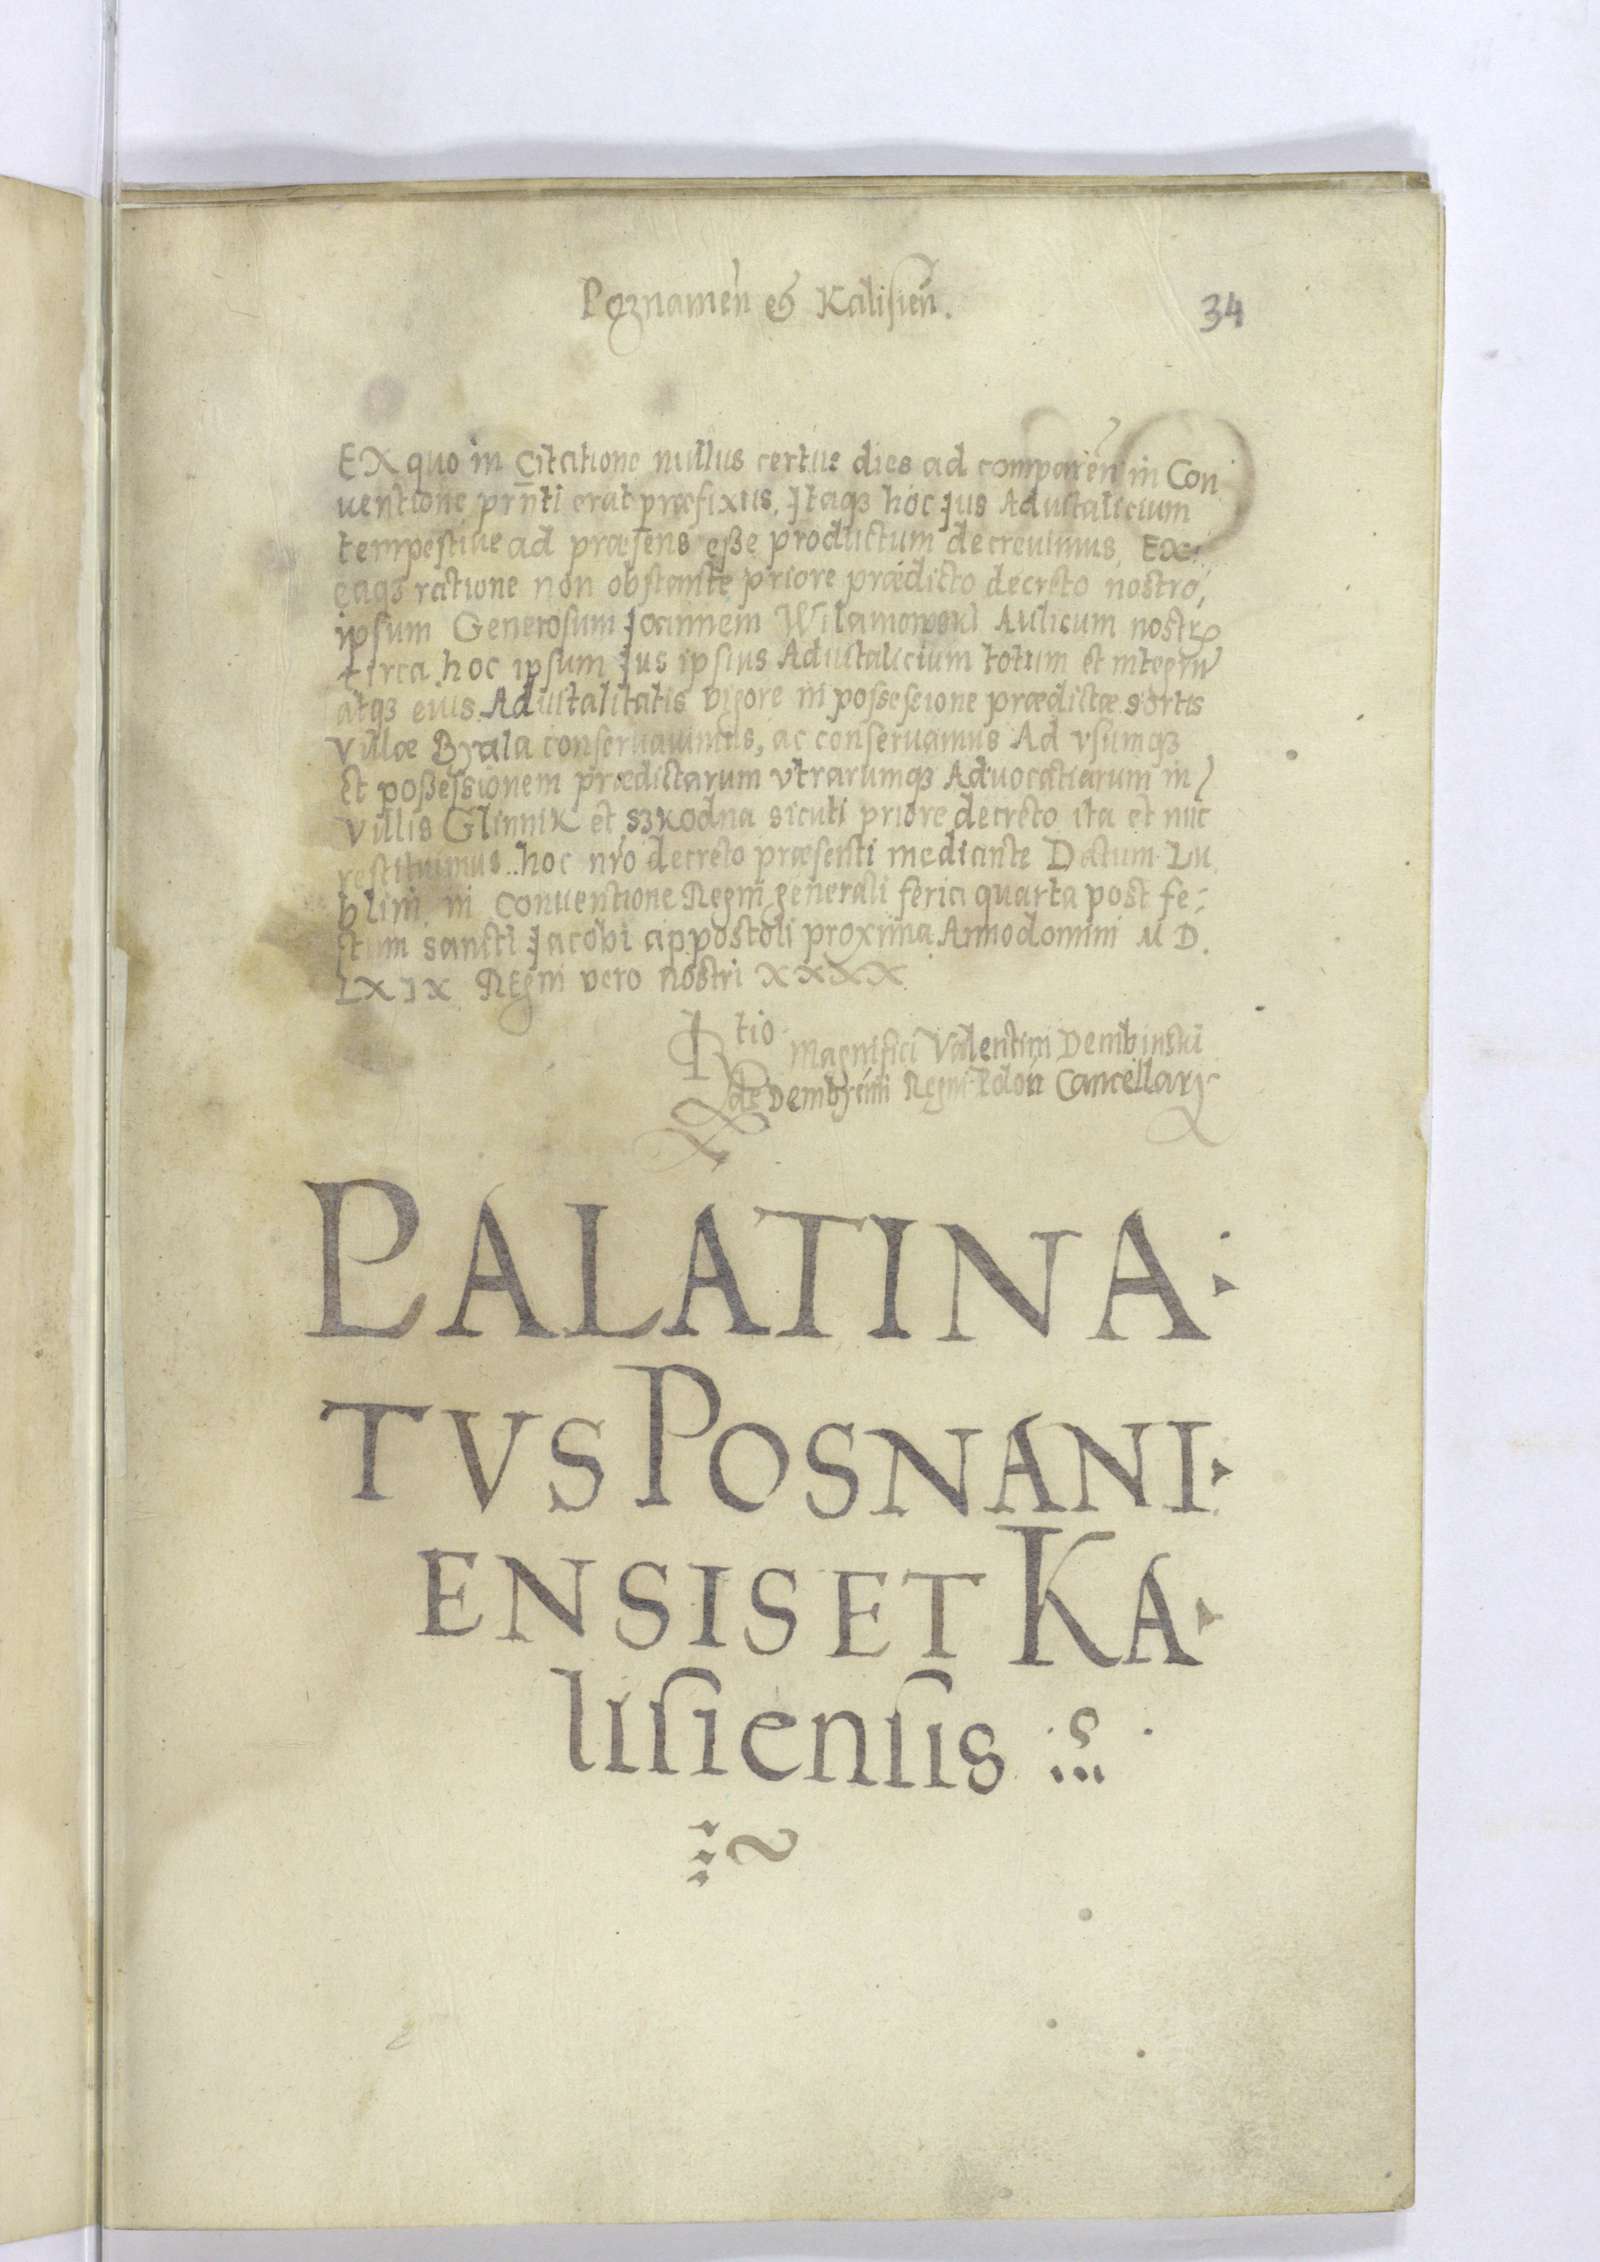 Poznamen̄ & Kalisien̄.
34
EX quo in Citatione nullus certus dies ad comparen̄ in Con
uentione prn̄ti erat præfixus, Itaqȝ hoc Jus Aduitalicium
tempestiue ad præsens eße productum decreuimus, Ex
eaqȝ ratione non obstante priore prædicto decreto nostro,
ipsum Generosum Joannem Wilamowski Aulicum nostrū
circa hoc ipsum Jus ipsius Aduitalicium totum et integrū
atqȝ eius Aduitalitatis vigore in possessione prædictæ sortis
villæ Byala conseruauimus, ac conseruamus Ad vsumqȝ
et poßessionem prædictarum vtrarumqȝ Aduocatiarum in
villis Glinnik et Szkodna sicuti priore decreto ita et nūc
restituimus hoc nr̄o decreto præsenti mediante Datum Lu
blini in Conuentione Regni generali feria quarta post fe-
stum sancti Jacobi appostoli proxima Anno domini M D.
LXIX Regni vero nostri XXXX
Rtio Magnifici Valentini Dembinski
de Dembiani Regni Polon̄ Cancellarij
PALATINA
TVS POSNANI
ENSIS ET KA
lisiensis